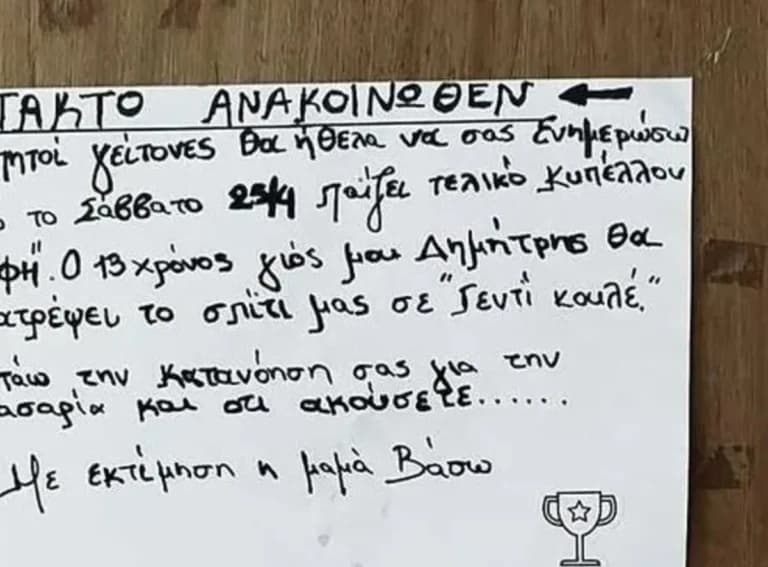 ΤΑΚΤΟ ΑΝΑΚΟΙΝΩΘΕΝ
πητοί γείτονες θα ήθελα να σας ενημερώσω
το Σάββατο 25/4 παίζει τελικό κυπέλλου
ΦΗ". Ο 13χρόνος γιός μου Δημήτρης θα
ατρέψει το σπίτι μας σε "Γεντί κουλέ."
τάω την κατανόηση σας για την
ασαρία και ότι ακούσετε......
Με εκτίμηση η μαμά Βάσω